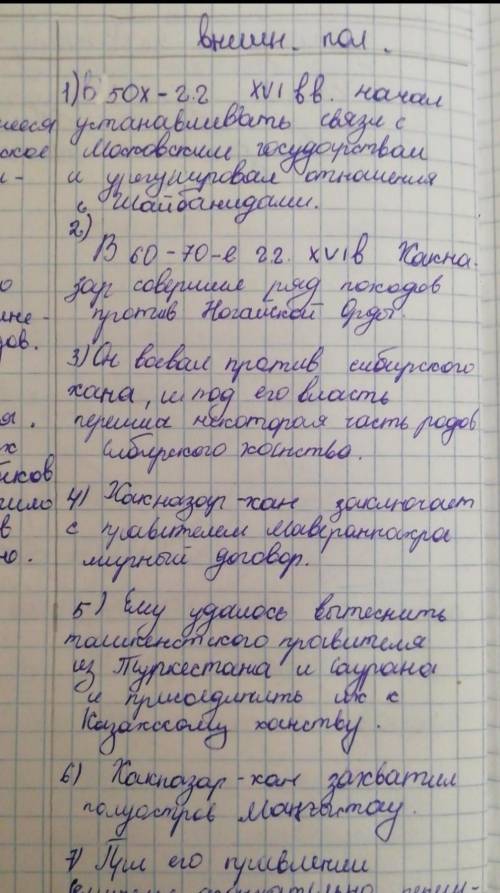 внешн. пол.
1) В 50х - г.г XVI вв. начал
устанавливать связи с
Московским государствам
и урегулировал отношения
с Шайбанидами.
2)
В 60-70-е г.г. XVIв Хакна-
зар совершил ряд походов
против Ногайской Орды.
3) Он воевал против сибирского
хана, и под его власть
перешла некоторая часть родов
Сибирского ханства.
4) Хакназар-хан заключает
с правителем Мавераннахра
мирный договор.
5) Ему удалось вытеснить
ташкентского правителя
из Туркестана и Саурана
и присоединить их к
Казахскому ханству.
6) Хакназар-хан захватил
полуостров Маңғыстау.
7) При его правлении